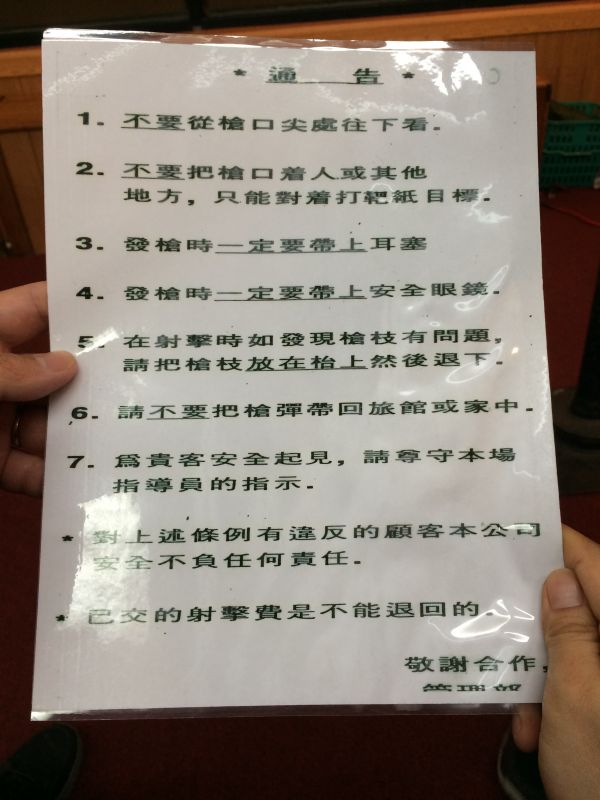 * 通 告 *
1. 不要從槍口尖處往下看.
2. 不要把槍口着人或其他
地方, 只能對着打靶紙目標.
3. 發槍時一定要帶上耳塞
4. 發槍時一定要帶上安全眼鏡.
5. 在射擊時如發現槍枝有問題,
請把槍枝放在枱上然後退下.
6. 請不要把槍彈帶回旅館或家中.
7. 爲貴客安全起見, 請尊守本場
指導員的指示.
* 對上述條例有違反的顧客本公司
安全不負任何責任.
* 已交的射擊費是不能退回的.
敬謝合作,
管理部